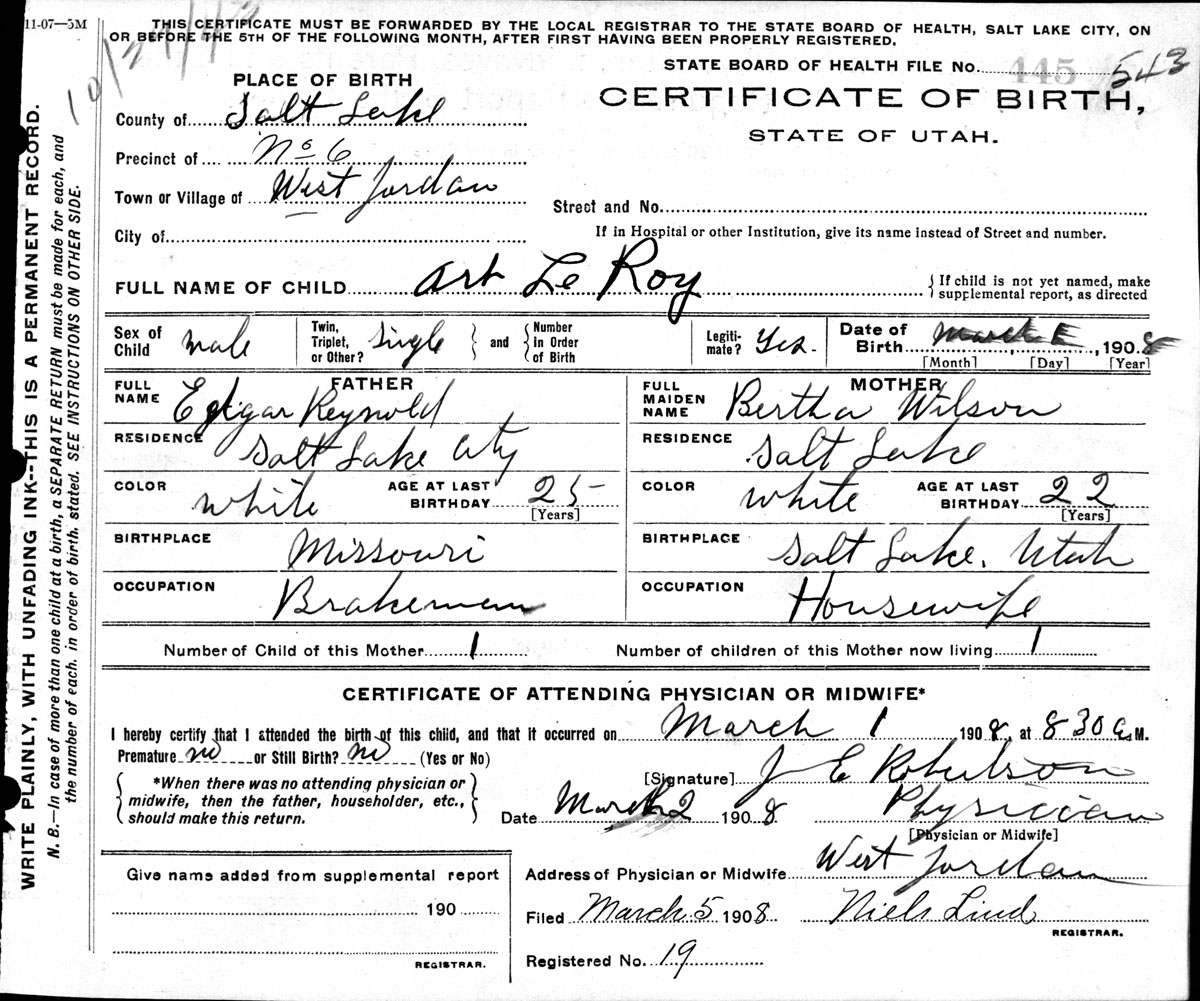 11-07—5M
10/21/42
THIS CERTIFICATE MUST BE FORWARDED BY THE LOCAL REGISTRAR TO THE STATE BOARD OF HEALTH, SALT LAKE CITY, ON
OR BEFORE THE 5TH OF THE FOLLOWING MONTH, AFTER FIRST HAVING BEEN PROPERLY REGISTERED.
STATE BOARD OF HEALTH FILE No. 445 543
CERTIFICATE OF BIRTH,
STATE OF UTAH.
PLACE OF BIRTH
County of Salt Lake
Precinct of No 6
Town or Village of West Jordan
City of
Street and No.
If in Hospital or other Institution, give its name instead of Street and number.
FULL NAME OF CHILD Art Le Roy
{ If child is not yet named, make
supplemental report, as directed
Sex of Child male
Twin, Triplet, or Other? single } and { Number in Order of Birth
Legiti-mate? Yes.
Date of Birth March 1, 1908
[Month] [Day] [Year]
FATHER
FULL NAME Edgar Reynold
RESIDENCE Salt Lake City
COLOR White AGE AT LAST BIRTHDAY 25 [Years]
BIRTHPLACE Missouri
OCCUPATION Brakeman
MOTHER
FULL MAIDEN NAME Bertha Wilson
RESIDENCE Salt Lake
COLOR White AGE AT LAST BIRTHDAY 22 [Years]
BIRTHPLACE Salt Lake. Utah
OCCUPATION Housewife
Number of Child of this Mother 1 Number of children of this Mother now living 1
CERTIFICATE OF ATTENDING PHYSICIAN OR MIDWIFE*
I hereby certify that I attended the birth of this child, and that it occurred on March 1 1908, at 8 30 a. M.
Premature no or Still Birth? no (Yes or No)
{ *When there was no attending physician or
midwife, then the father, householder, etc.,
should make this return. }
[Signature] J E Robertson
Date March 2 1908 Physician
[Physician or Midwife]
Address of Physician or Midwife West Jordan
Filed March 5 1908 Niels Lind
REGISTRAR.
Registered No. 19
Give name added from supplemental report
190
REGISTRAR.
WRITE PLAINLY, WITH UNFADING INK--THIS IS A PERMANENT RECORD.
N. B.—In case of more than one child at a birth, a SEPARATE RETURN must be made for each, and
the number of each, in order of birth, stated. SEE INSTRUCTIONS ON OTHER SIDE.